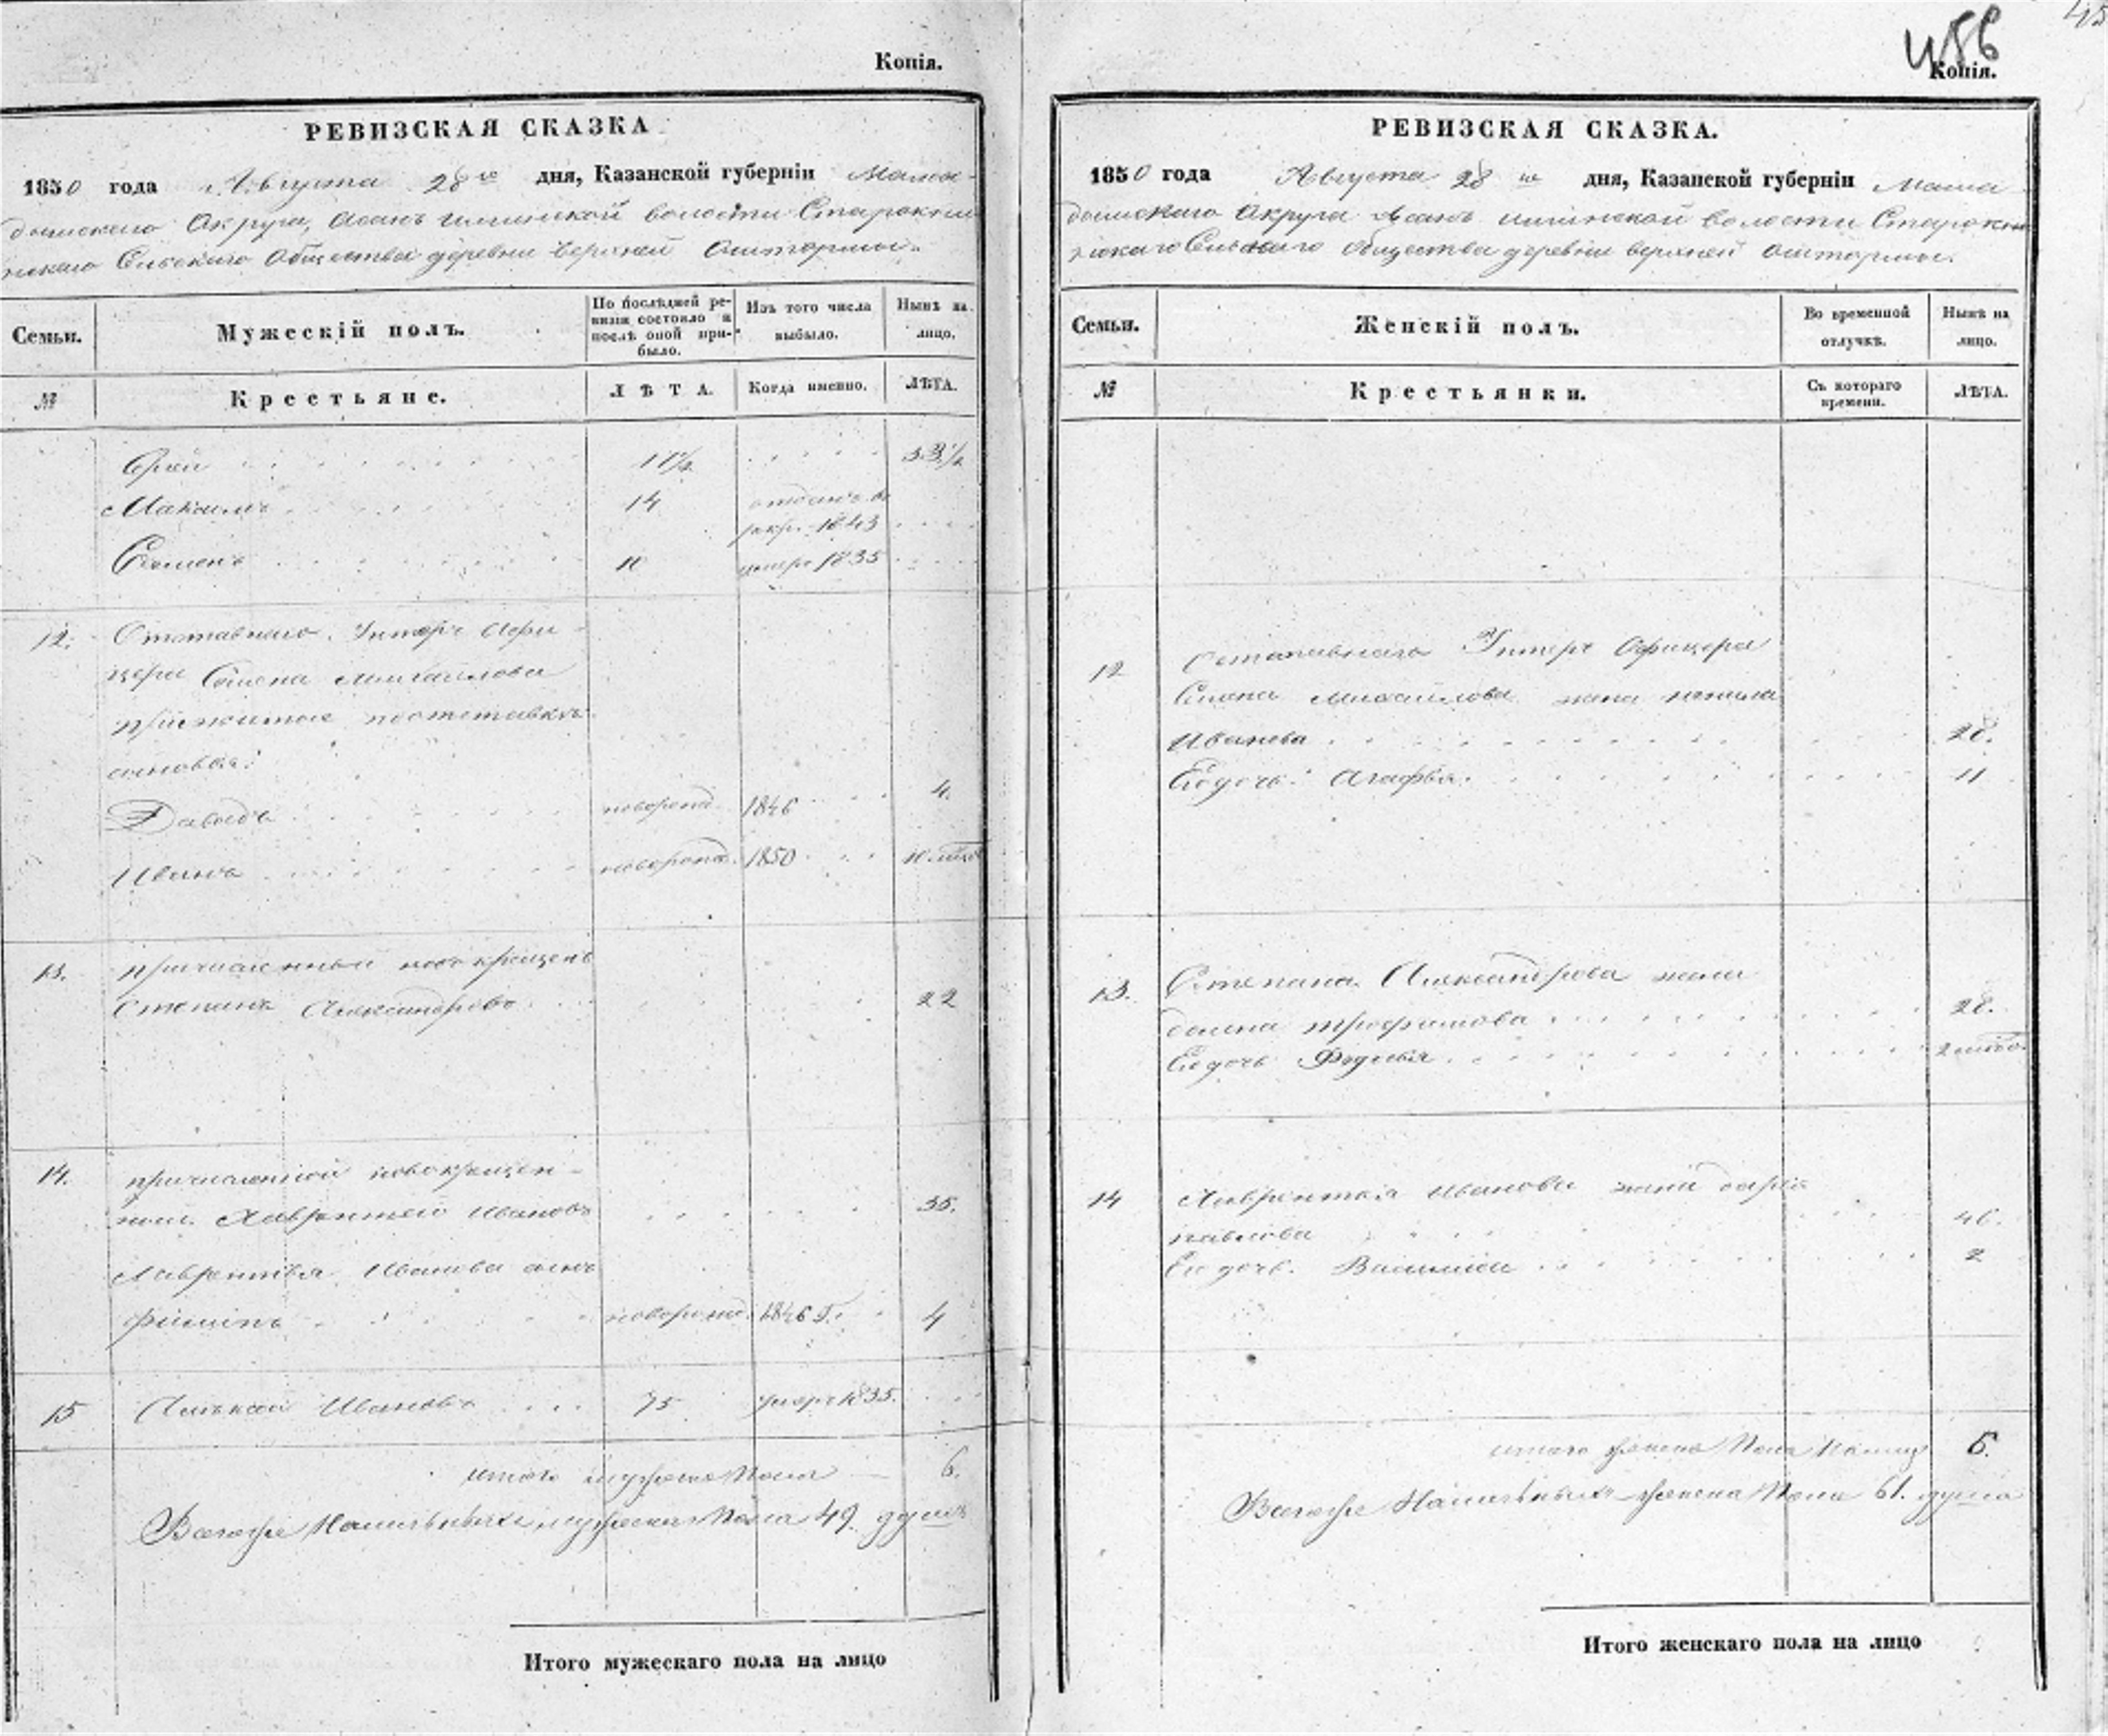 Копія.
РЕВИЗСКАЯ СКАЗКА
1850 года Августа 28го дня, Казанской губерніи Мама-
дышскаго Округа, волости
Сельскаго Общества деревни Верхней Оштормы.
Семьи.
Мужескій полъ.
По послѣдней ре-
визіи состояло и
послѣ оной при-
было.
Изъ того числа
выбыло.
Нынѣ на
лицо.
№
Крестьяне.
ЛѢТА.
Когда именно.
ЛѢТА.
11½ 33½
Максимъ 14 отданъ въ
рекр. 1843
Семенъ 10 умеръ 1835
12. Отставнаго Унтеръ Офи-
цера Семена Михайлова
прижитые
сыновья:
Давыдъ новорожд. 1846 4.
Иванъ новорожд. 1850
13. причисленный новокрещенъ
Степанъ Александровъ 22
14. причисленной новокрещен-
Лаврентей Ивановъ 35.
Лаврентья Иванова сынъ
Филипъ новорожд. 1846 г. 4
15 Ивановъ 75 умеръ 1835.
итого мужеска пола 6.
Всего же Наличныхъ мужеска Пола 49 душъ
Итого мужескаго пола на лицо
456
45
Копія.
РЕВИЗСКАЯ СКАЗКА.
1850 года Августа 28го дня, Казанской губерніи Мама
дышскаго Округа волости
Общества деревни верхней Оштормы.
Семьи.
Женскій полъ.
Во временной
отлучкѣ.
Нынѣ на
лицо.
№
Крестьянки.
Съ котораго
времени.
ЛѢТА.
12 Отставнаго Унтеръ Офицера
Семена Михайлова жена
Иванова 28.
Ея дочь: Агафья. 11
13. Степана Александрова жена
Трофимова 28.
Ея дочь
14 Лаврентья Иванова жена Дарья
павлова 46.
Ея дочь. 2
итого женска Пола 6.
Всего же Наличныхъ женска Пола 61. душа
Итого женскаго пола на лицо